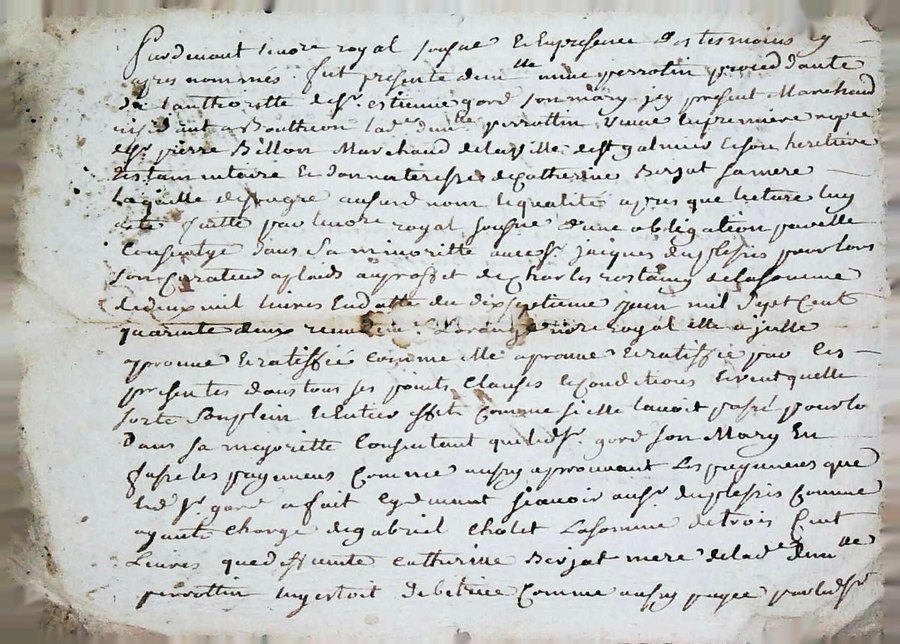 Pardevant Nore royal sousne Et Enpresence Des tesmoins cy
apres nommés fut presente demlle anne perrotin proceddante
De Lauthoritte de Sr. estienne gord son mary jcy present Marchand
residant a Boutheon Ladte demlle perrottin vinne Enpremiere nopce
de Sr. pierre Billon Marchand de la ville de St galmier Et son heritiere
testamentaire Et donnateresse de Catherine Berjat sa mere
Laquelle de son gre ausurd nom Et qualités apres que lecture luy
a ete faitte par le nore royal sousne d'une obligation par elle
Consentye dans Sa minoritte avec Sr. jacques duplessis pour lors
Son Curateur ad lods au proffit de Charles rostaing de la somme
de deux mil Livres En datte du dix septieme juin mil sept Cent
quarante deux nore royal elle a
aprouvé Et ratiffié Comme Elle aprouve Et ratiffie par les
presentes dans tous ses points Clauses Et Conditions Et veut quelle
sorte Son plein Et Entier effet Comme si elle lavoit passé pour lo
Dans sa majoritte Consentant que led Sr. gord son Mary En
fasse les payemens Comme aussy aprouvant Les payemens que
Led Sr. gord a fait Egalement sçavoir au Sr. duplessis Comme
ayant Charge de gabriel Cholet La somme de trois Cent
Livres que deffunte Catherine Berjat mere de lade demlle
perrottin luy estoit debitrice Comme aussy payée par led Sr